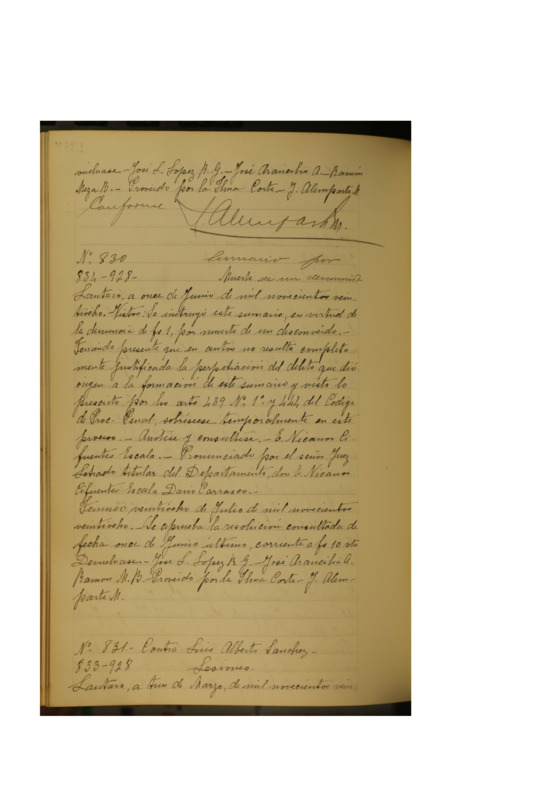 vuélvase.- José L. Lopez R. G.- José Arancibia A.- Ramón
Meza B.- Proveído por la Iltma Corte- J. Alemparte M.
Conforme
J Alemparte M.
N.° 830 Sumario por
834-928- Muerte de un desconocido
Lautaro, a once de Junio de mil novecientos vein-
tiocho.- Vistos: Se instruyó este sumario, en virtud de
la denuncia de fs 1, por muerte de un desconocido.-
Teniendo presente que en autos no resulta completa-
mente justificada la perpetracion del delito que dió
origen a la formacion de este sumario y visto lo
prescrito por los arts 439 N.° 1.° y 444 del Codigo
de Proc. Penal, sobreséese temporalmente en este
proceso.- Anótese y consúltese.- E. Nicanor Ci-
fuentes Escala.- Pronunciado por el señor Juez
Letrado titular del Departamento, don E. Nicanor
Cifuentes Escala Dario Carrasco.-
Temuco, veintiocho de Julio de mil novecientos
veintiocho.- Se aprueba la resolucion consultada de
fecha once de Junio último, corriente a fs 10 vta
Devuélvase- José L. Lopez R. G.- José Arancibia A.
Ramon M. B.- Proveído por la Iltma Corte- J. Alem-
parte M.
N.° 831- Contra Luis Alberto Sanchez-
833-928 Lesiones.
Lautaro, a tres de Marzo, de mil novecientos vein